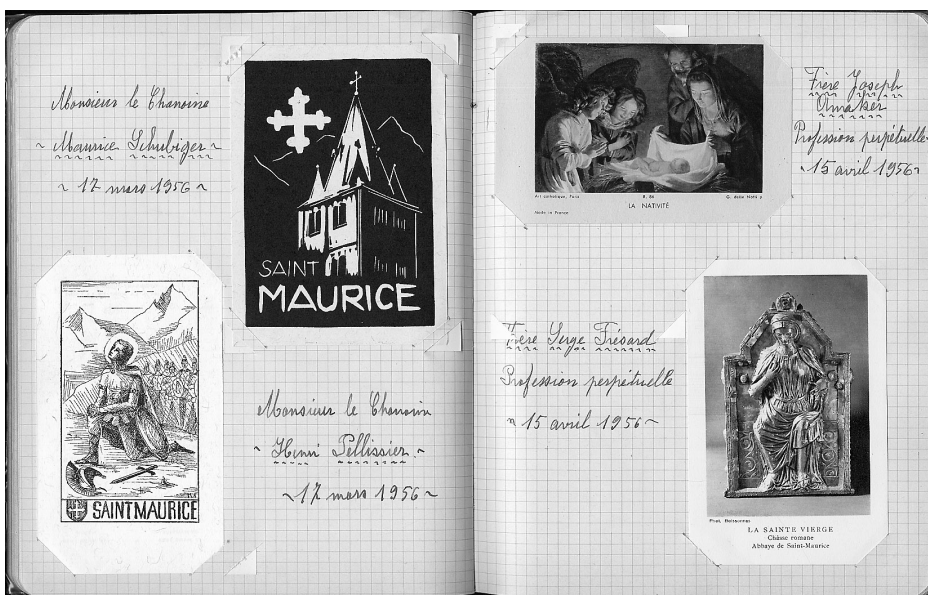 Monsieur le Chanoine
~ Maurice Schubiger ~
~ 17 mars 1956 ~
SAINT
MAURICE
SAINT MAURICE
Monsieur le Chanoine
~ Henri Pellissier ~
~ 17 mars 1956 ~
Art catholique, Paris
R. 84
G. delle Notte p.
LA NATIVITÉ
Made in France
Frère Joseph
Amaker
Profession perpétuelle
~ 15 avril 1956 ~
Frère Serge Frésard
Profession perpétuelle
~ 15 avril 1956 ~
Phot. Boissonnas
LA SAINTE VIERGE
Châsse romane
Abbaye de Saint-Maurice